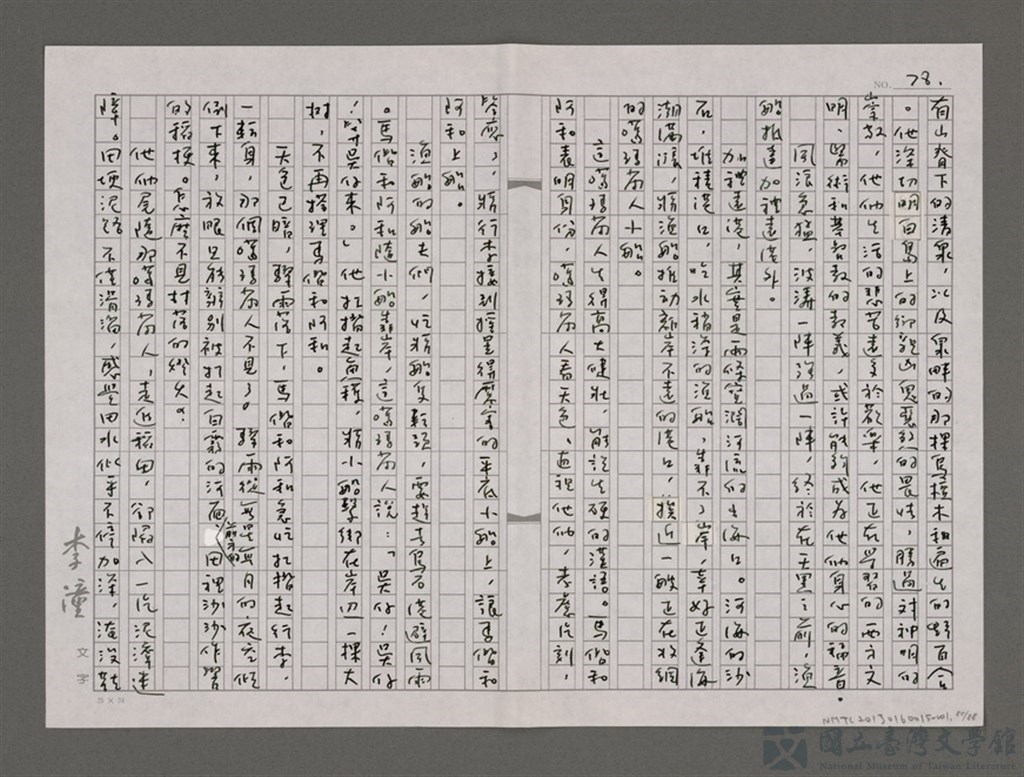 NO. 78.
有山脊下的清泉，以及泉畔的那棵烏樟木和遍生的野百合
。他深切明白島上的鄉親凶鬼惡煞的畏怯，勝過對神明的
崇敬，他們生活的悲苦遠多於歡樂，他正在學習的西方文
明、醫術和基督教的教義，或許能夠成為他們身心的福音。
風浪急猛，波濤一陣洶過一陣，終於在天黑之前，漁
船抵達加禮遠港外。
加禮遠港，其實是兩條寬濶河流的出海口。河海的沙
石，堆積港口，吃水稍深的漁船，靠不了岸，幸好正逢海
潮滿漲，將漁船推動離岸不遠的港口，挨近一艘正在收網
的噶瑪蘭人小船。
這噶瑪蘭人生得高大健壯，能說生硬的漢語。馬偕和
阿和表明身份，噶瑪蘭人看天色、逛視他們，考慮片刻，
答應了，將行李接到擁擠得厲害的平底小船上，讓馬偕和
阿和上船。
漁船的船夫們，忙將船隻轉頭，要趕去烏石港避風雨
。馬偕和阿和隨小船靠岸，這噶瑪蘭人說：「吳仔！吳仔
！等吳仔來。」他扛揹起魚簍，將小船擊綁在岸邊一棵大
樹，不再搭理馬偕和阿和。
天色已暗，驟雨落下，馬偕和阿和急忙扛揹起行李，
一轉身，那個噶瑪蘭人不見了。驟雨從無星無月的夜空傾
倒下來，放眼只能辨別被打起白霧的河面，前方的田裡沙沙作響
的稻梗。怎麼不見村落的燈火？
他們尾隨那噶瑪蘭人，走近稻田，卻陷入一片泥濘迷
障。田埂泥路不僅滑溜，感覺田水似乎不停加深，淹沒鞋
李潼
文字
NMTL20130160015-001. 80/88
國立臺灣文學館
National Museum of Taiwan Literature